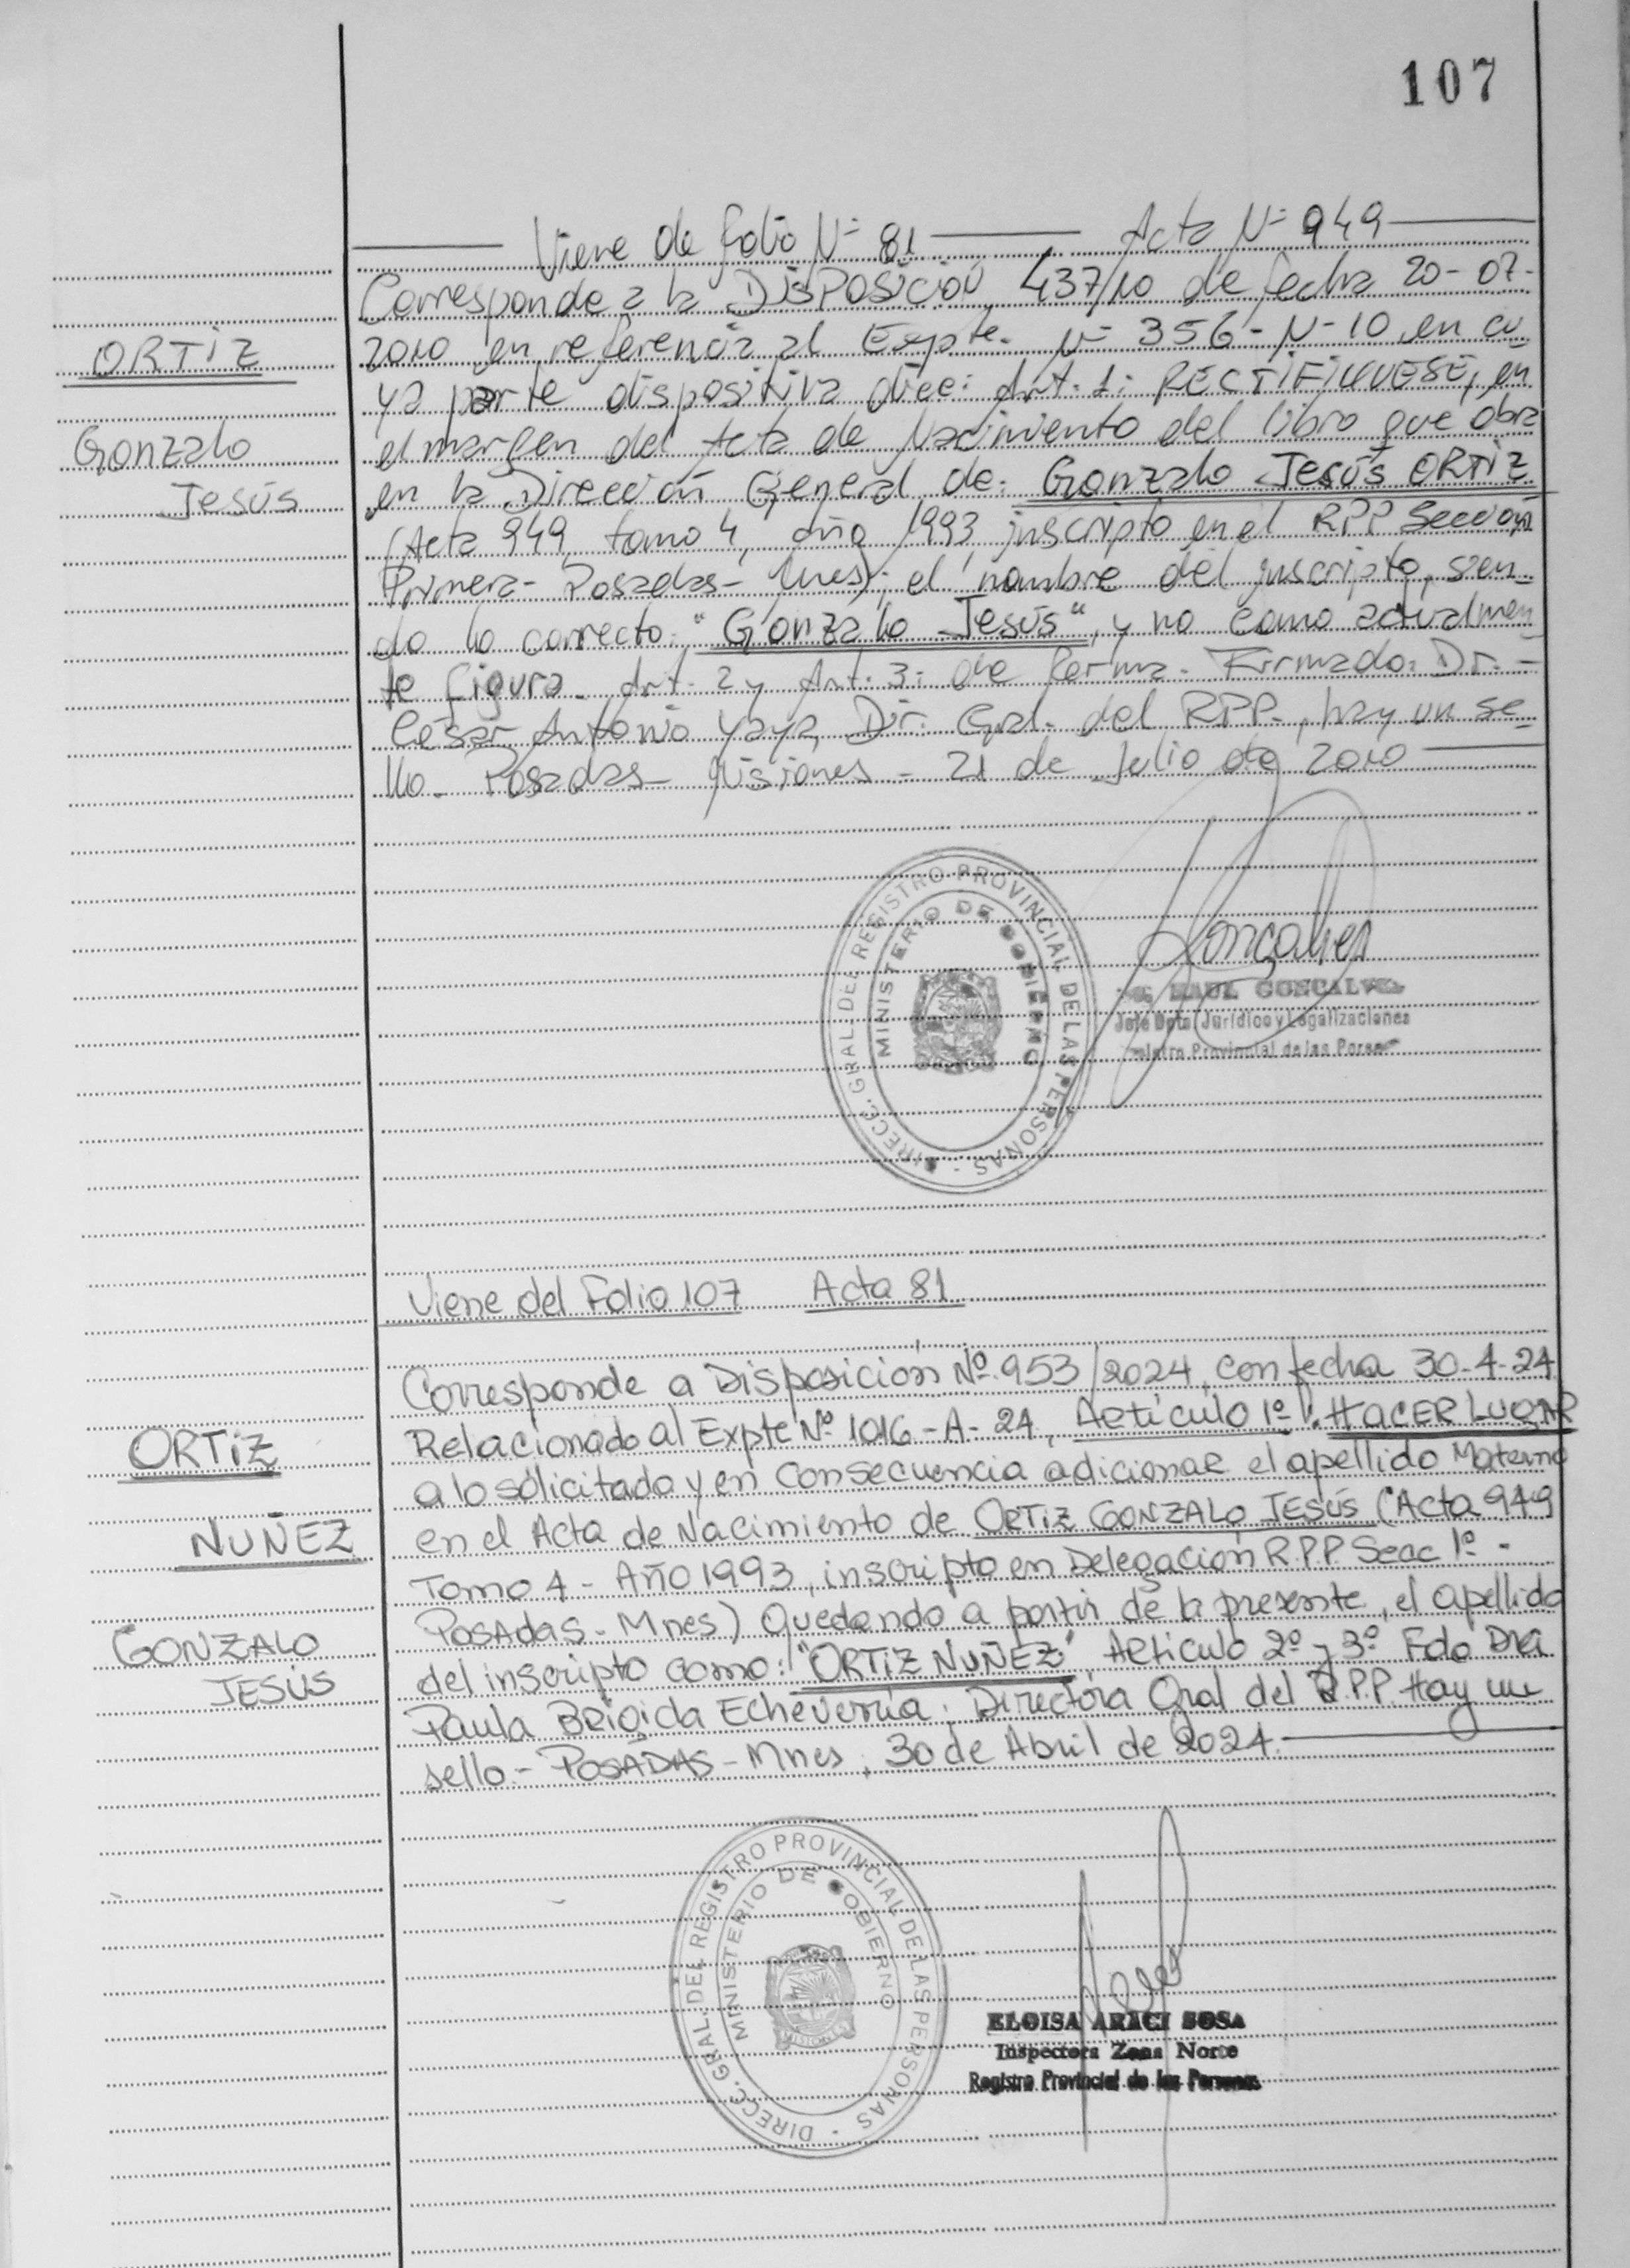 107
Viene de folio Nº 81 Acta Nº 949
Corresponde a la DISPOSICIÓN 437/10 de fecha 20-07-
2010 en referencia al Expte. Nº 356-N-10 en cu
ya parte dispositiva dice: Art. 1: RECTIFIQUESE, en
el margen del Acta de Nacimiento del libro que obra
en la Dirección General de: Gonzalo Jesús ORTIZ
(Acta 949, tomo 4, año 1993 inscripto en el RPP Sección
Primera- Posadas- Mnes); el nombre del inscripto, sien-
do lo correcto: "Gonzalo Jesús", y no como actualmen
te figura. Art. 2 y Art. 3: de forma. Firmado: Dr. -
César Antonio Yaya, Dir. Gral. del RPP., hay un se
llo. Posadas- Misiones - 21 de Julio de 2010
ORTIZ
Gonzalo
Jesús
DIRECC. GRAL. DEL REGISTRO PROVINCIAL DE LAS PERSONAS -
MINISTERIO DE GOBIERNO
Goncalves
RAUL GONCALVES
Jefe Dpto. Jurídico y Legalizaciones
Registro Provincial de las Personas
Viene del Folio 107 Acta 81
Corresponde a Disposición Nº 953/2024, con fecha 30-4-24
Relacionado al Expte Nº 1016-A-24, Artículo 1º: HACER LUGAR
a lo solicitado y en consecuencia adicionar el apellido Materno
en el Acta de Nacimiento de ORTIZ GONZALO JESÚS (Acta 949
Tomo 4 - Año 1993, inscripto en Delegación R.P.P. Secc 1º -
POSADAS - Mnes) Quedando a partir de la presente, el apellido
del inscripto como: "ORTIZ NUÑEZ" Artículo 2º y 3º Fdo Dra
Paula Brígida Echeverría. Directora Gral del R.P.P. Hay un
sello.- POSADAS - Mnes, 30 de Abril de 2024.
ORTIZ
NUÑEZ
GONZALO
JESÚS
DIRECC. GRAL. DEL REGISTRO PROVINCIAL DE LAS PERSONAS -
MINISTERIO DE GOBIERNO
MISIONES
ELOISA ARACI SOSA
Inspectora Zona Norte
Registro Provincial de las Personas